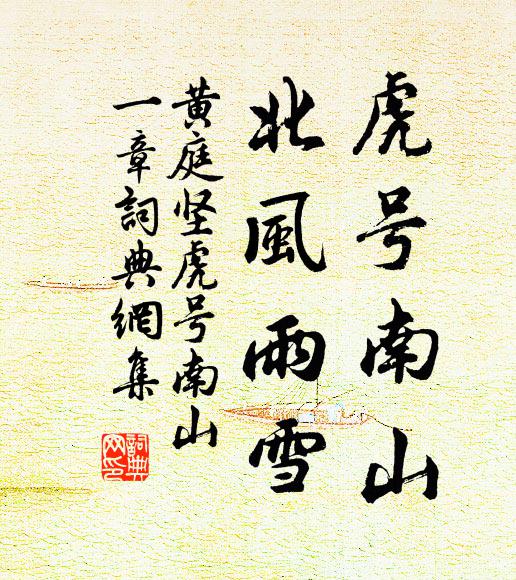 虎号南山
北風雨雪
黄庭坚虎号南山
一章詞典網集
詞典
网印